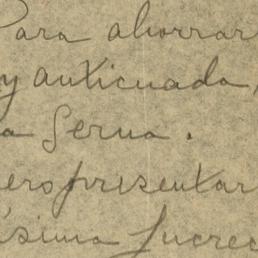 Para ahorrar
y anticuada,
a Serna.
ero presentar
ísima Lucrec